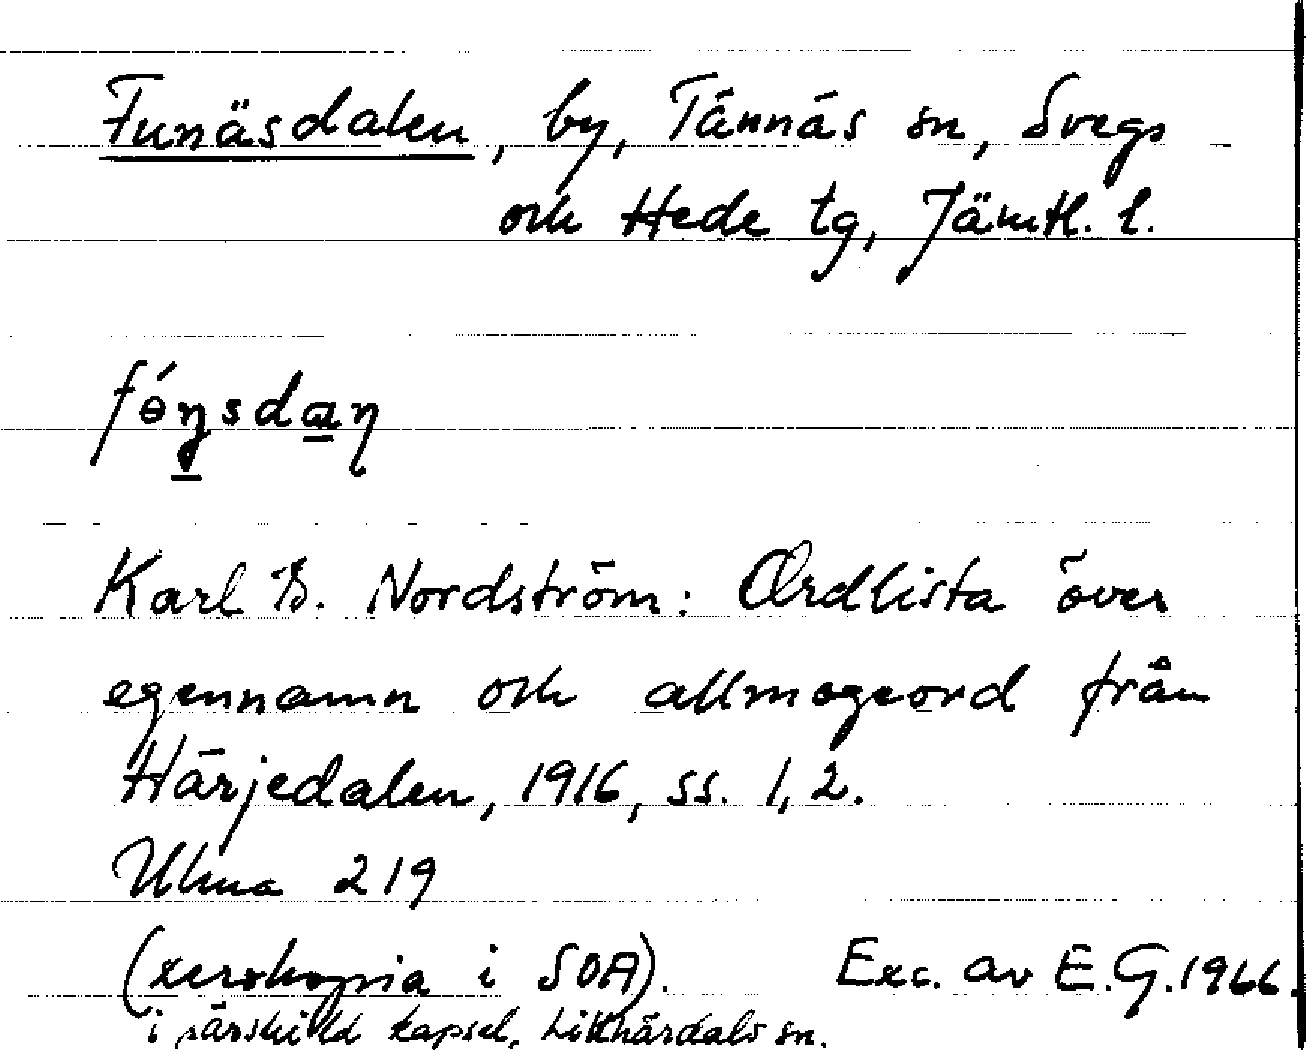 Funäsdalen, by, Tännäs sn, Svegs
och Hede tg, Jämtl. l.
fǿŋsdaŋ
Karl B. Nordström: Ordlista över
egennamn och allmogeord från
Härjedalen, 1916, ss. 1, 2.
Ulma 219
(xerokopia i SOA). Exc. av E.G. 1966.
i särskild kapsel, Lillhärdals sn.